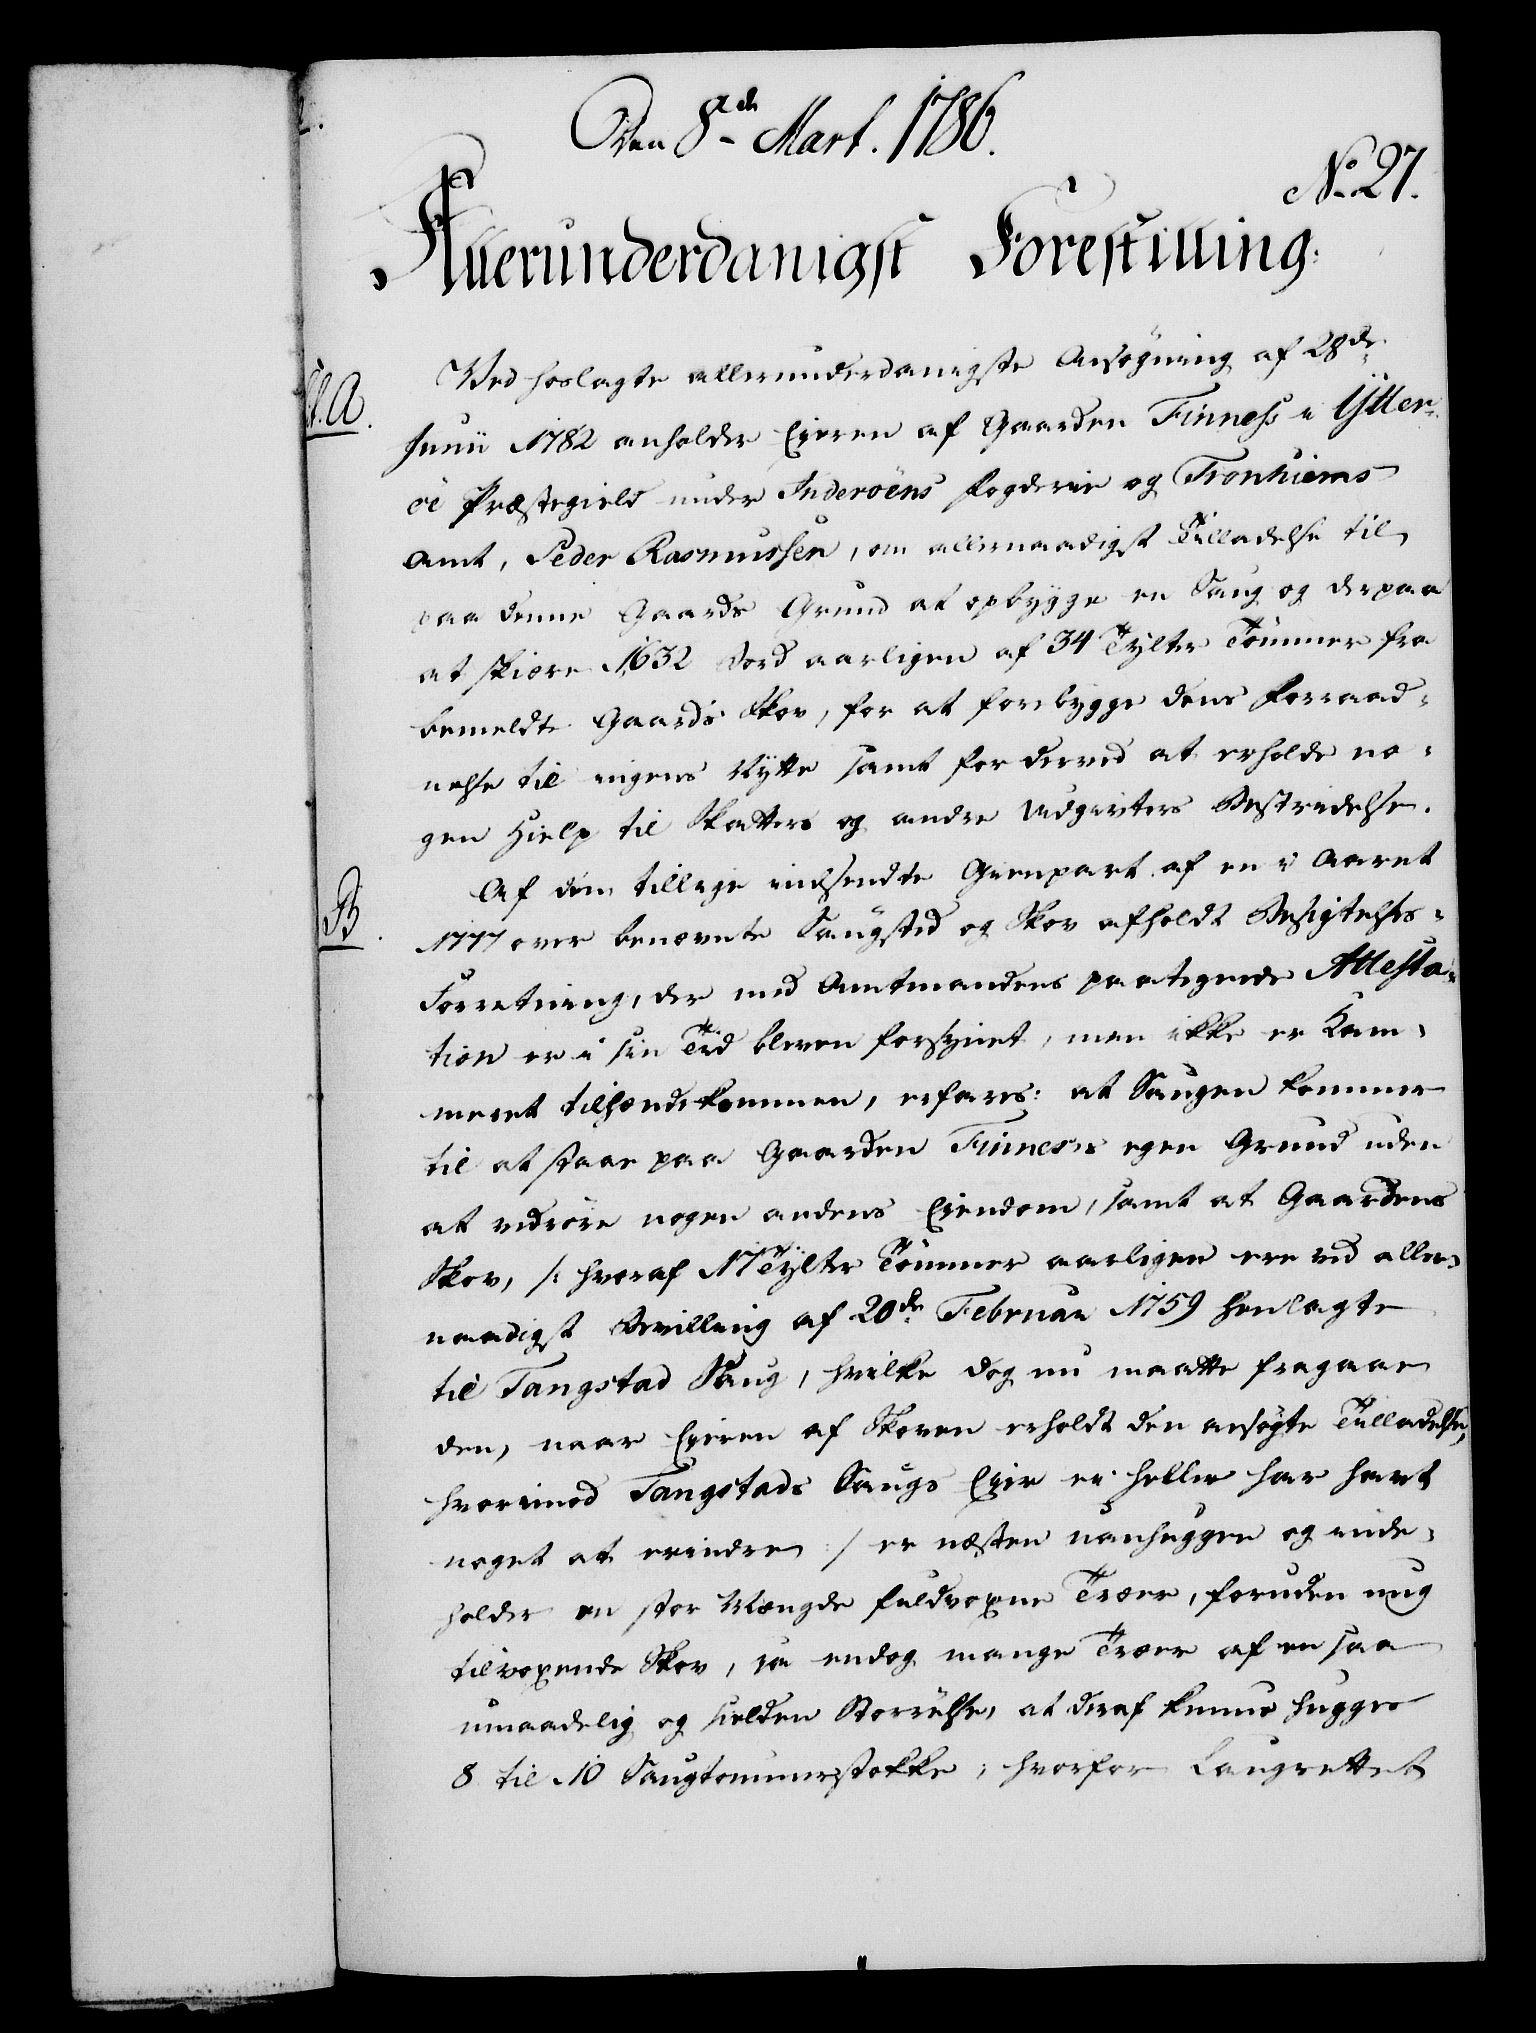 Den 8de Mart. 1786.
No 27.
Allerunderdanigst Forestilling:
Lit. A. Ved hoslagte allerunderdanigste Ansøgning af 28de
Junii 1782 anholder Eieren af Gaarden Finness i Ytter-
öe Præstegield under Inderöens Fogderie og Tronhiems
Amt, Peder Rasmussen, om allernaadigst Tilladelse til
paa denne Gaards Grund at opbygge en Saug og derpaa
at skiære 1632 Bord aarligen af 34 Tylter Tömmer fra
bemeldte Gaards Skov, for at forebygge dens Forraad-
nelse til ingens Nytte samt for derved at erholde no-
gen Hielp til Skatters og andre Udgivters Bestridelse.
B. Af den tillige indsendte Gienpart af en i Aaret
1777 over benævnte Saugsted og Skov afholdt Besigtelses-
Forretning, der med Amtmandens paategnede Attesta-
tion er i sin Tid bleven forsynet, men ikke er Kam-
meret tilhændekommen, erfares: at Saugen kommer
til at staae paa Gaarden Finnes's egen Grund uden
at vedröre nogen andens Eiendom, samt at Gaardens
Skov, /: hvoraf 17 Tylter Tömmer aarligen ere ved aller-
naadigst Bevilling af 20de Februar 1759 henlagte
til Tangstad Saug, hvilke dog nu maatte fragaae
den, naar Eieren af Skoven erholdt den ansögte Tilladelse,
hvorimod Tangstads Saugs Eier ei heller har havt
noget at erindre :/ er næsten uanhuggen og inde-
holder en stor Mængde fuldvoxne Træer, foruden ung
tilvoxende Skov, ja endog mange Træer af en saa
umaadelig og sielden Störrelse, at deraf kunne hugges
8 til 10 Saugtömmerstokke; hvorfor Laugrettet